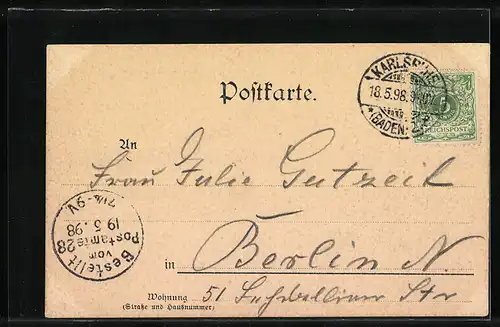 KARLSRUHE
18.5.98.
(BADEN)
REICHSPOST
Postkarte.
An
Frau Julie Gutzeit
Bestellt
vom
Postamte 28
19.5.98
7¼-9V
in Berlin N.
Wohnung 51
(Straße und Hausnummer)
Str